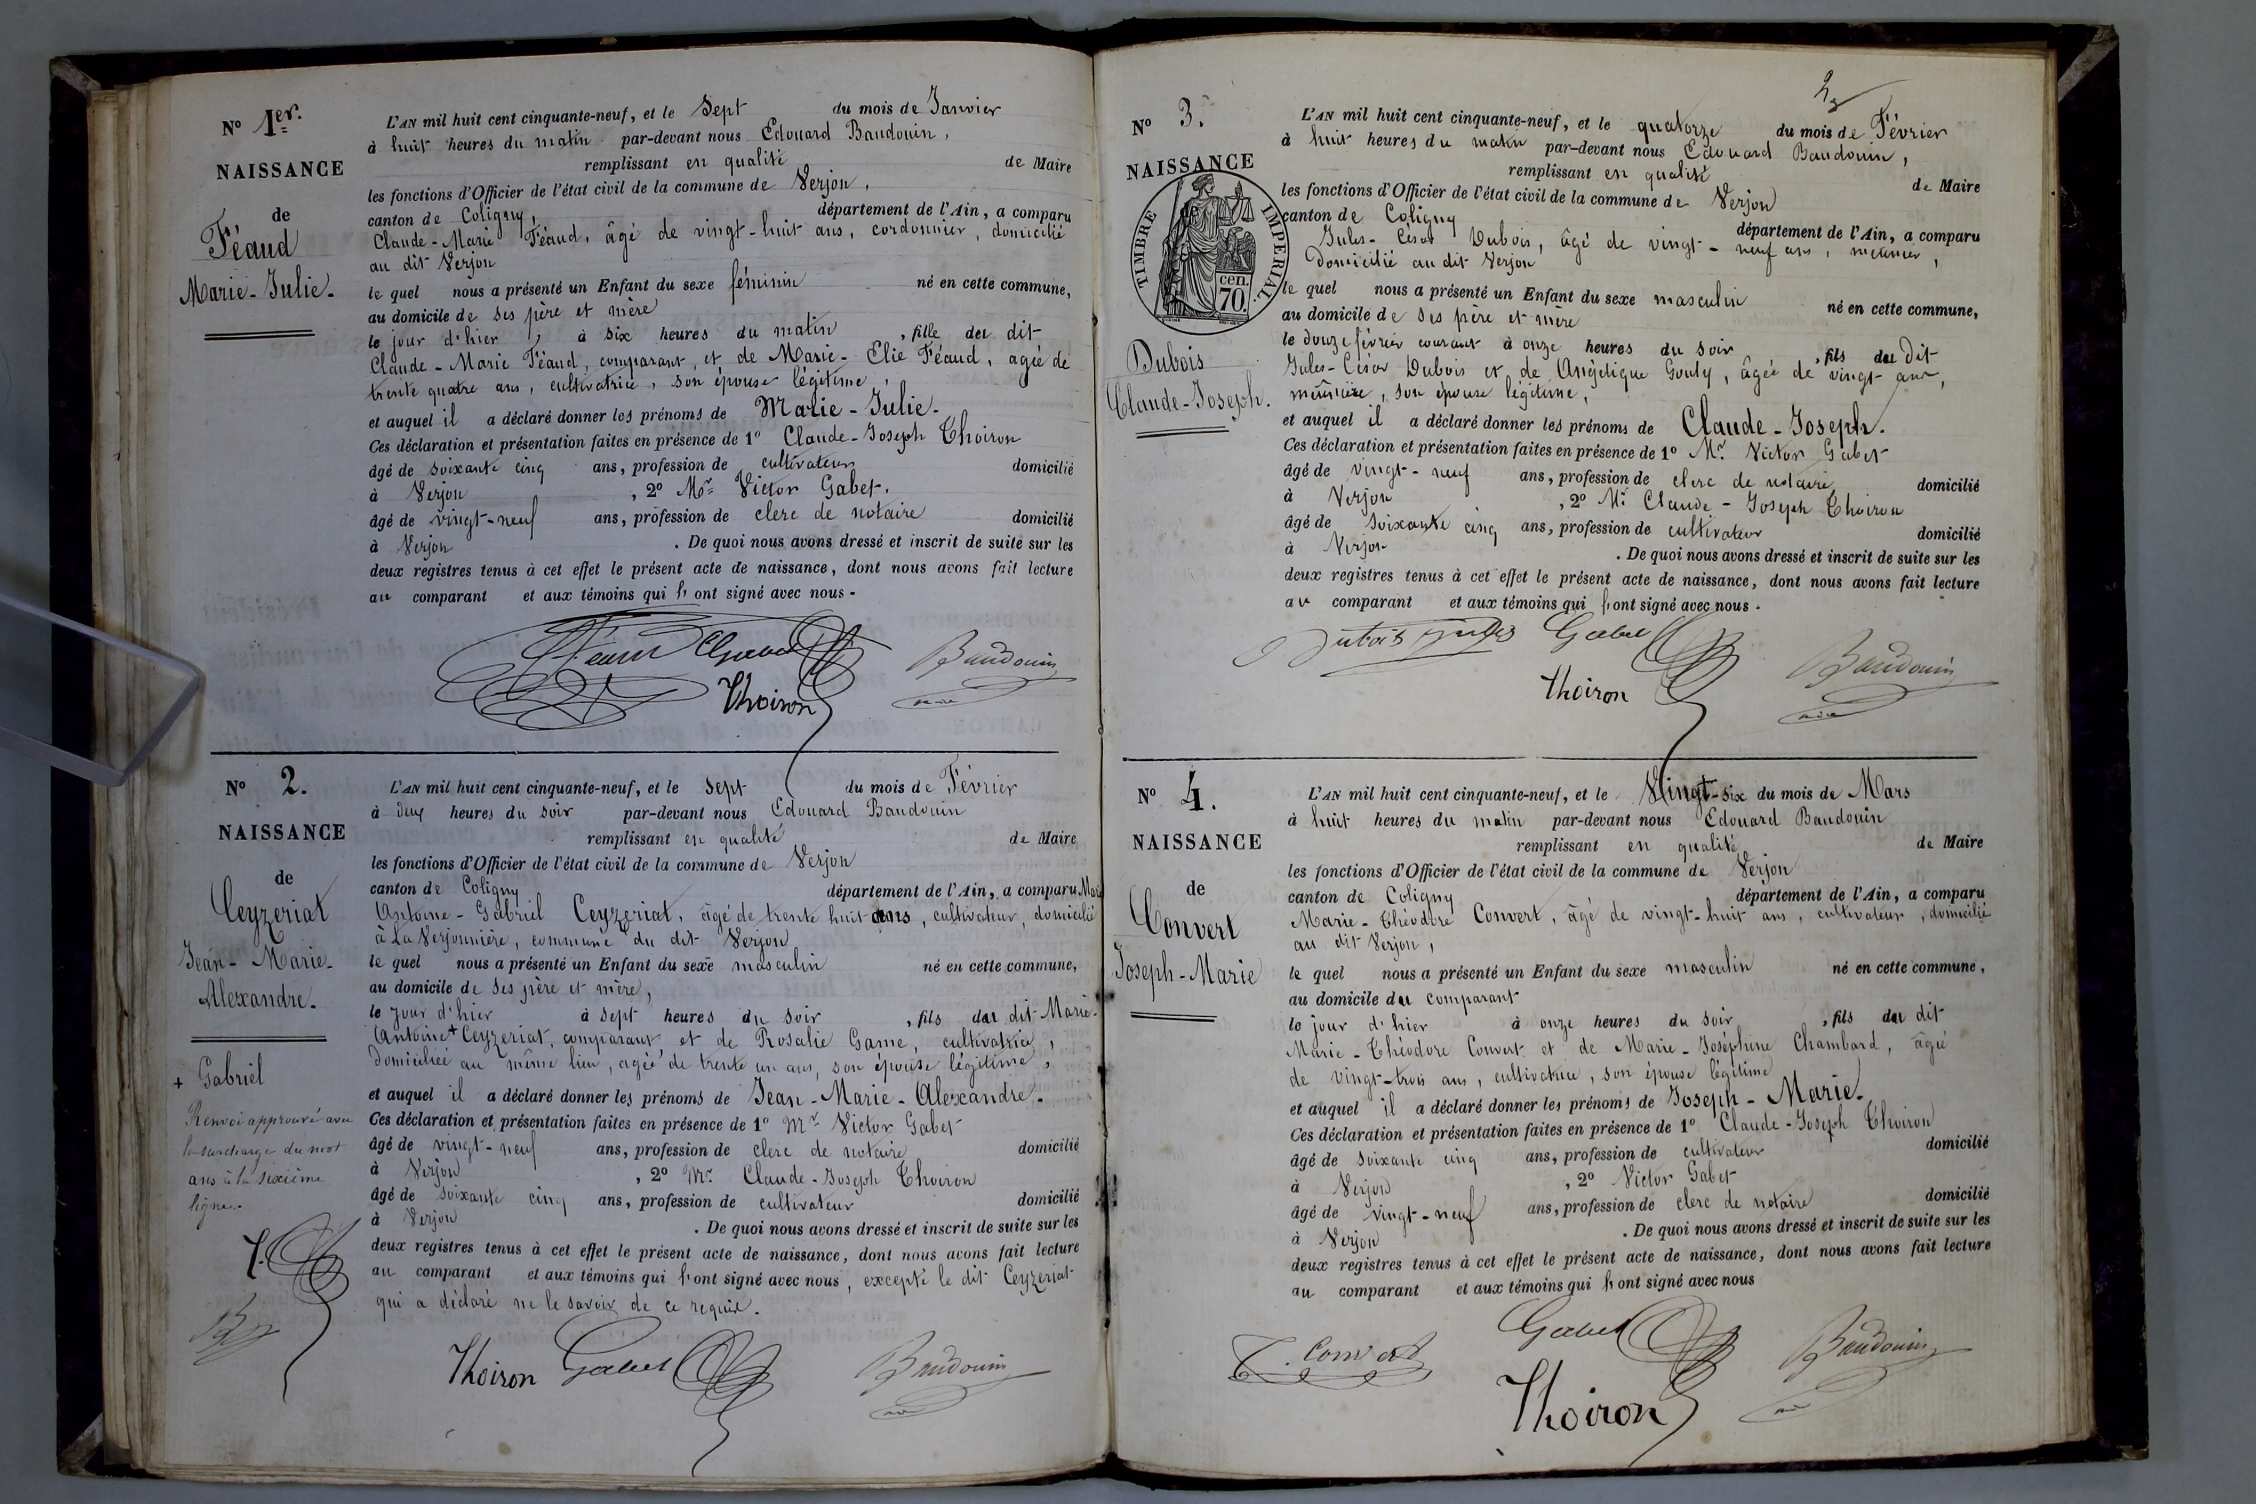 N° 1er.
NAISSANCE
de
Féaud
Marie-Julie.
L'AN mil huit cent cinquante-neuf, et le Sept du mois de Janvier
à huit heures du matin par-devant nous Edouard Baudouin,
remplissant en qualité de Maire
les fonctions d'Officier de l'état civil de la commune de Verjon,
canton de Coligny, département de l'Ain, a comparu
Claude-Marie Féaud, âgé de vingt-huit ans, cordonnier, domicilié
au dit Verjon
le quel nous a présenté un Enfant du sexe féminin né en cette commune,
au domicile de ses père et mère
le jour d'hier, à six heures du matin, fille du dit
Claude-Marie Féaud, comparant, et de Marie-Elie Féaud, agée de
trente quatre ans, cultivatrice, son épouse légitime,
et auquel il a déclaré donner les prénoms de Marie-Julie.
Ces déclaration et présentation faites en présence de 1° Claude-Joseph Thoiron
âgé de soixante cinq ans, profession de cultivateur domicilié
à Verjon, 2° Mr Victor Gabet.
âgé de vingt-neuf ans, profession de clerc de notaire domicilié
à Verjon. De quoi nous avons dressé et inscrit de suite sur les
deux registres tenus à cet effet le présent acte de naissance, dont nous avons fait lecture
au comparant et aux témoins qui l'ont signé avec nous.
Féaud Gabet Baudouin
Thoiron
N° 2.
NAISSANCE
de
Ceyzeriat
Jean-Marie-
Alexandre.
+ Gabriel
Renvoi approuvé avec
la surcharge du mot
ans à la sixième
ligne.
L'AN mil huit cent cinquante-neuf, et le Sept du mois de Février
à deux heures du soir par-devant nous Edouard Baudouin
remplissant en qualité de Maire
les fonctions d'Officier de l'état civil de la commune de Verjon
canton de Coligny département de l'Ain, a comparu Marie
Antoine-Gabriel Ceyzeriat, âgé de trente huit ans, cultivateur, domicilié
à La Verjonnière, commune du dit Verjon
le quel nous a présenté un Enfant du sexe masculin né en cette commune,
au domicile de ses père et mère,
le jour d'hier à sept heures du soir, fils du dit Marie-
Antoine + Ceyzeriat, comparant et de Rosalie Game, cultivatrice,
domiciliée au même lieu, agée de trente un ans, son épouse légitime,
et auquel il a déclaré donner les prénoms de Jean-Marie-Alexandre.
Ces déclaration et présentation faites en présence de 1° Mr Victor Gabet
âgé de vingt-neuf ans, profession de clerc de notaire domicilié
à Verjon, 2° Mr. Claude-Joseph Thoiron
âgé de soixante cinq ans, profession de cultivateur domicilié
à Verjon. De quoi nous avons dressé et inscrit de suite sur les
deux registres tenus à cet effet le présent acte de naissance, dont nous avons fait lecture
au comparant et aux témoins qui l'ont signé avec nous, excepté le dit Ceyzeriat
qui a déclaré ne le savoir de ce requis.
Thoiron Gabet Baudouin
N° 3.
NAISSANCE
TIMBRE IMPERIAL.
cen.
70.
Dubois
Claude-Joseph.
L'AN mil huit cent cinquante-neuf, et le quatorze du mois de Février
à huit heures du matin par-devant nous Edouard Baudouin,
remplissant en qualité de Maire
les fonctions d'Officier de l'état civil de la commune de Verjon
canton de Coligny département de l'Ain, a comparu
Jules-César Dubois, âgé de vingt-neuf ans, meûnier,
domicilié au dit Verjon
le quel nous a présenté un Enfant du sexe masculin né en cette commune,
au domicile de ses père et mère
le douze février courant à onze heures du soir, fils du dit
Jules-César Dubois et de Angélique Gouly, âgée de vingt ans,
meûnière, son épouse légitime,
et auquel il a déclaré donner les prénoms de Claude-Joseph.
Ces déclaration et présentation faites en présence de 1° Mr. Victor Gabet
âgé de vingt-neuf ans, profession de clerc de notaire domicilié
à Verjon, 2° Mr Claude-Joseph Thoiron
âgé de soixante cinq ans, profession de cultivateur domicilié
à Verjon. De quoi nous avons dressé et inscrit de suite sur les
deux registres tenus à cet effet le présent acte de naissance, dont nous avons fait lecture
au comparant et aux témoins qui l'ont signé avec nous.
Dubois Jules Gabet Baudouin
Thoiron
N° 4.
NAISSANCE
de
Convert
Joseph-Marie
L'AN mil huit cent cinquante-neuf, et le Vingt-six du mois de Mars
à huit heures du matin par-devant nous Edouard Baudouin
remplissant en qualité de Maire
les fonctions d'Officier de l'état civil de la commune de Verjon
canton de Coligny département de l'Ain, a comparu
Marie-Théodore Convert, âgé de vingt-huit ans, cultivateur, domicilié
au dit Verjon,
le quel nous a présenté un Enfant du sexe masculin né en cette commune,
au domicile du comparant
le jour d'hier à onze heures du soir, fils du dit
Marie-Théodore Convert et de Marie-Joséphine Chambard, âgée
de vingt-trois ans, cultivatrice, son épouse légitime
et auquel il a déclaré donner les prénoms de Joseph-Marie.
Ces déclaration et présentation faites en présence de 1° Claude-Joseph Thoiron
âgé de soixante cinq ans, profession de cultivateur domicilié
à Verjon, 2° Victor Gabet
âgé de vingt-neuf ans, profession de clerc de notaire domicilié
à Verjon. De quoi nous avons dressé et inscrit de suite sur les
deux registres tenus à cet effet le présent acte de naissance, dont nous avons fait lecture
au comparant et aux témoins qui l'ont signé avec nous
T. Convert Gabet Baudouin
Thoiron